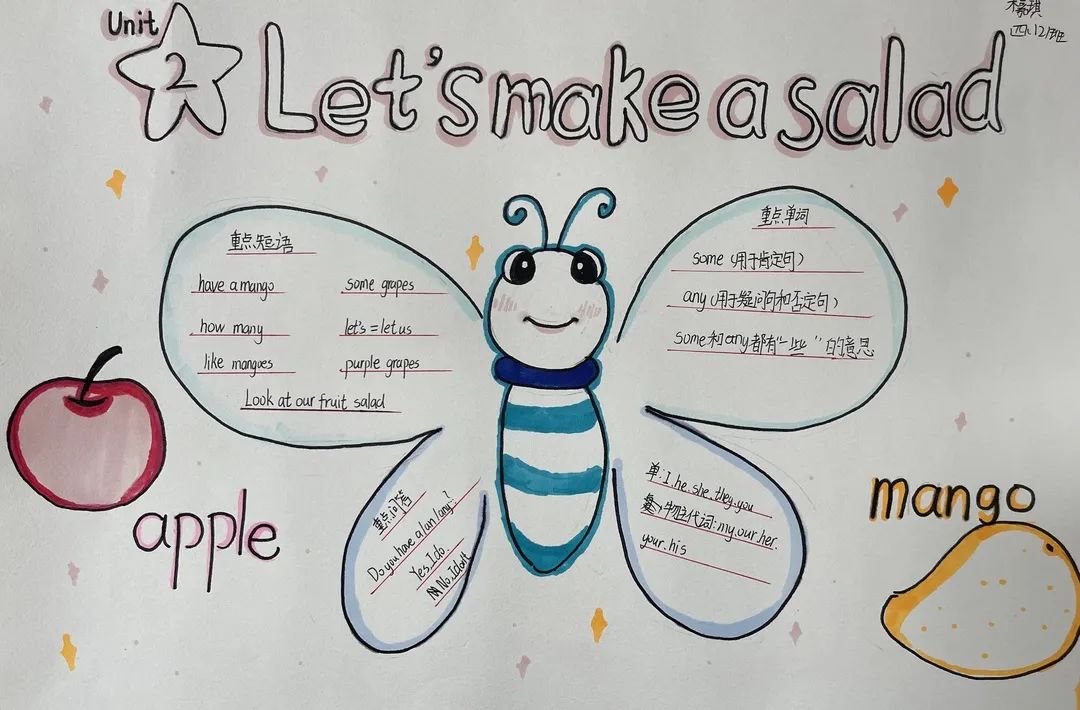 Unit
2
Let's make a salad
四、12班
重点短语
have a mango some grapes
how many let's = let us
like mangoes purple grapes
Look at our fruit salad
重点单词
some (用于肯定句)
any (用于疑问句和否定句)
some和any都有“一些”的意思
重点问答
Do you have a/an/any...?
Yes, I do.
No, I don't
单:I.he.she.they.you
物主代词:my.our.her.
your.his
apple
mango